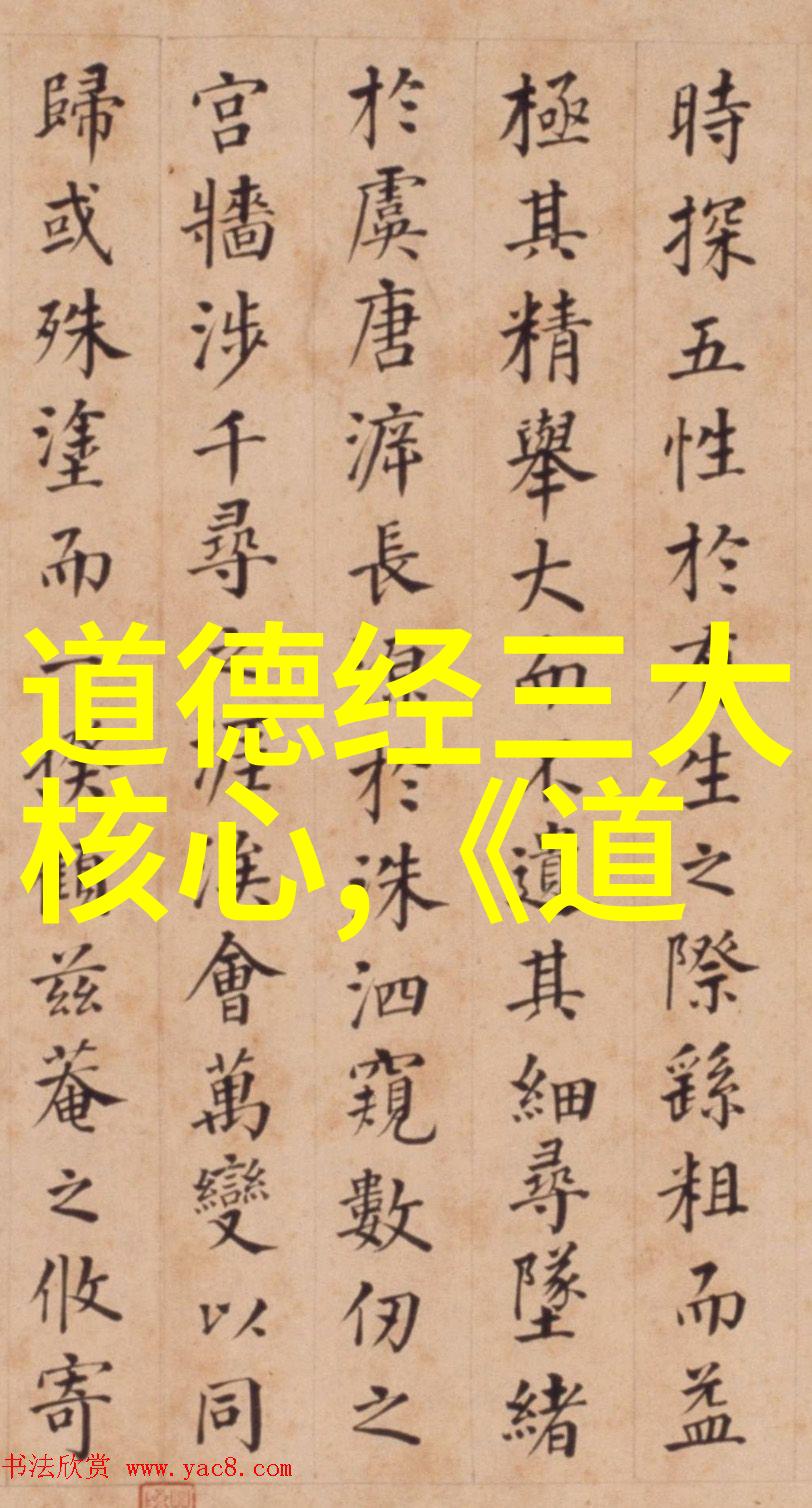 時探五性於有生之際繇粗而益
極其精舉大而不遺其細尋墜緒
於虞唐長源於洙泗窺數仞之
宮牆涉千尋之涯涘會萬變以同
歸或殊塗而一揆顧茲菴之攸寄
道德经三大
核心,《道
书法欣赏 www.yac8.com